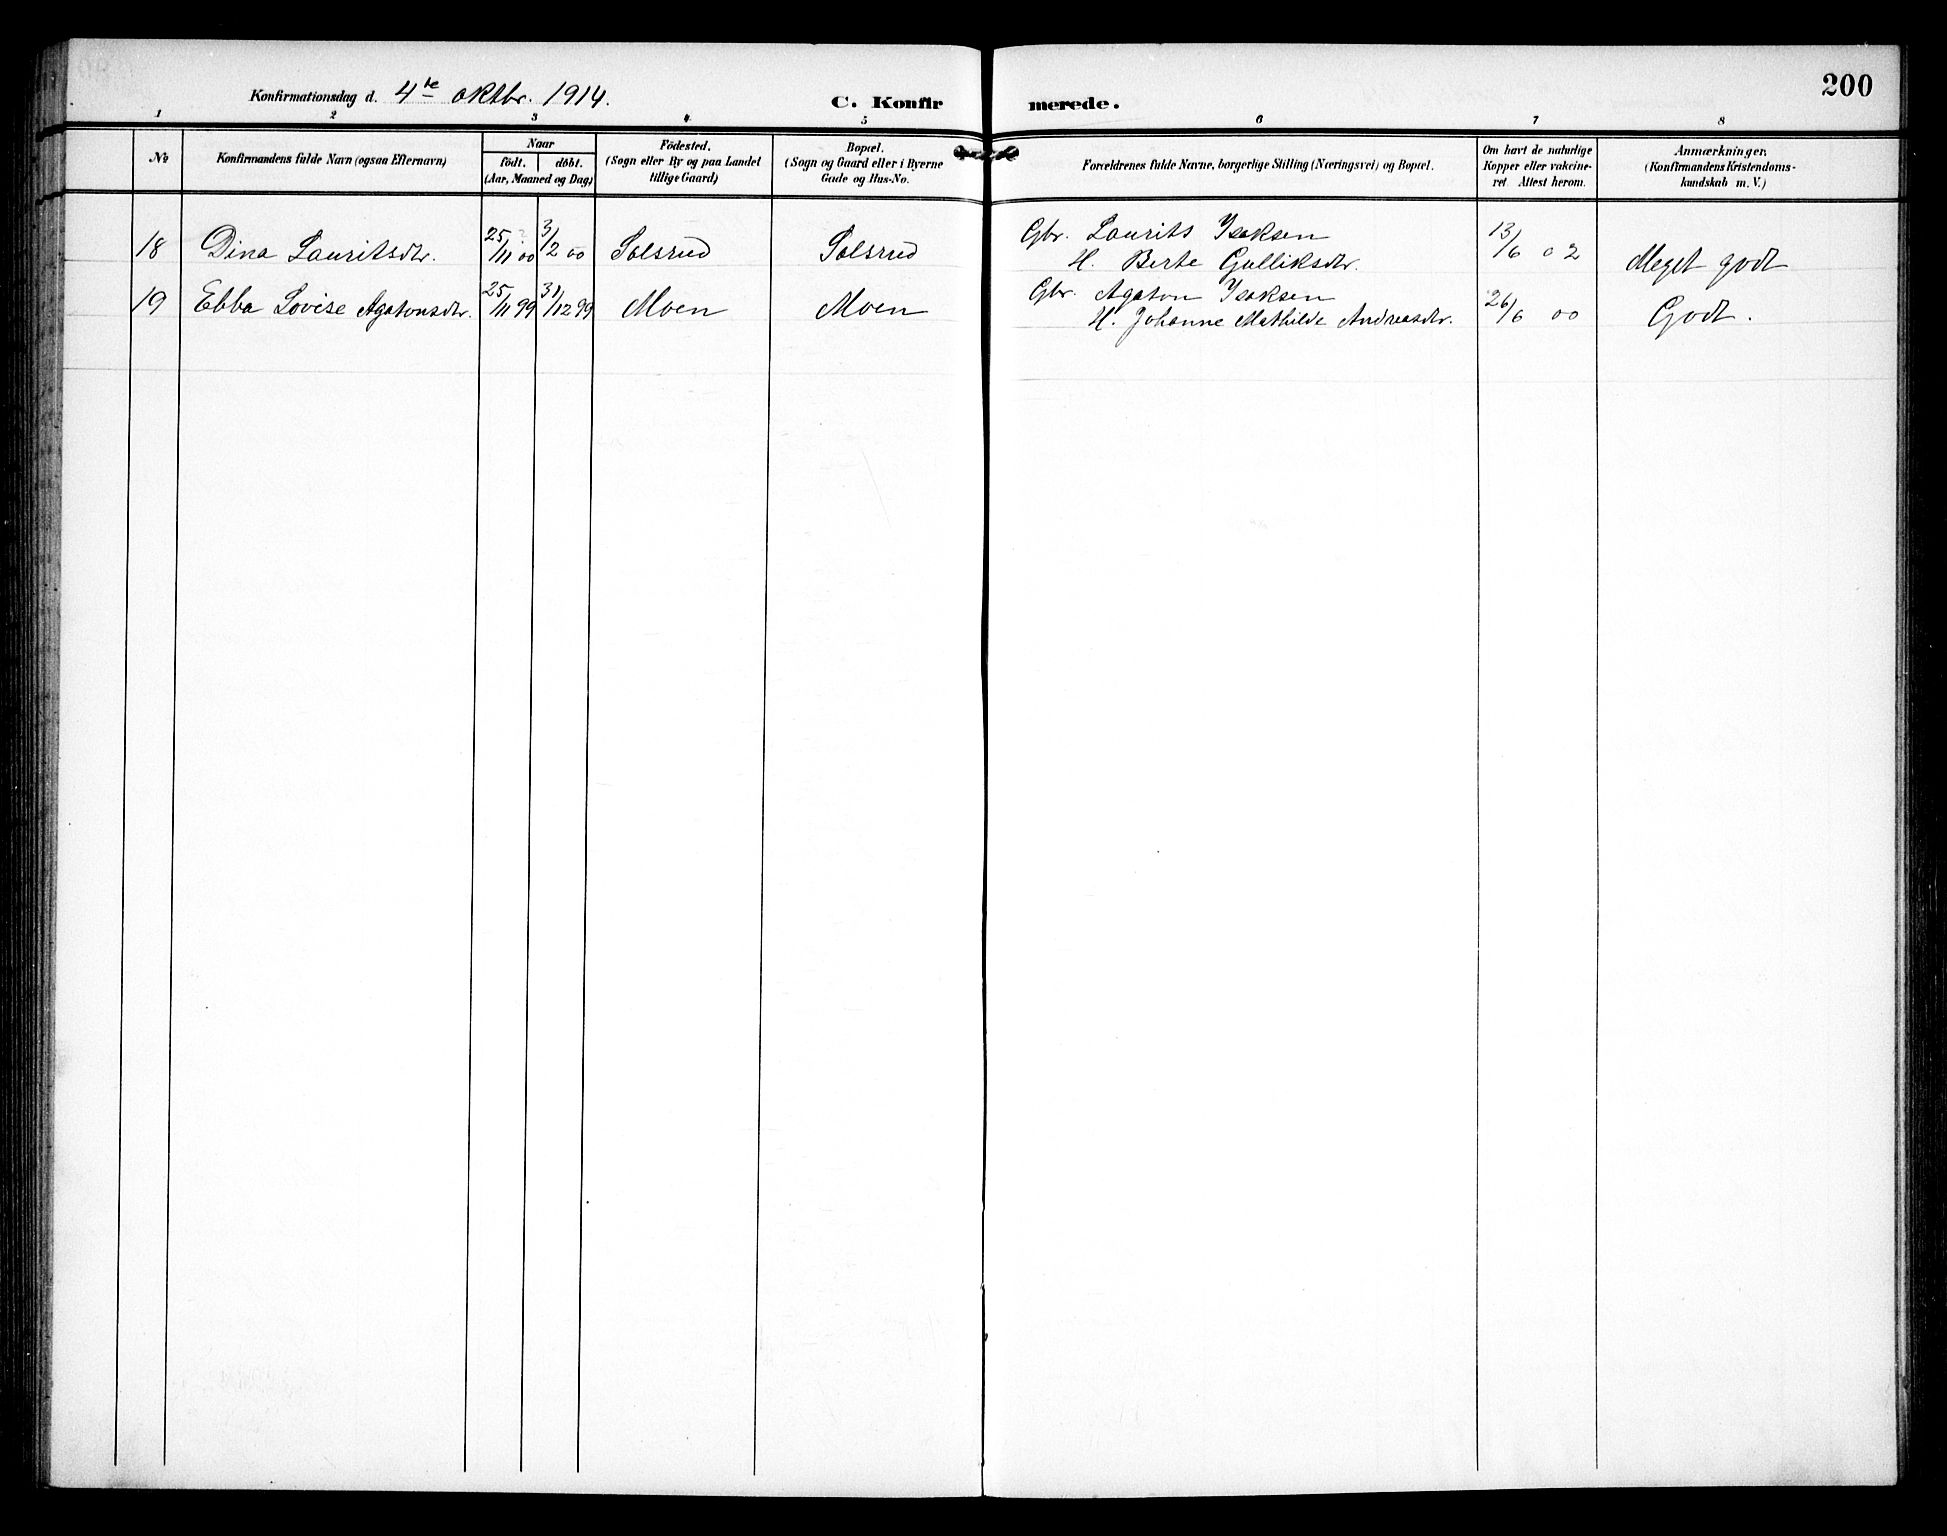 200
Konfirmationsdag d. 4de oktbr. 1914.
C. Konfirmerede.
1 2 3 4 5 6 7 8
No
Konfirmandens fulde Navn (ogsaa Efternavn)
Naar
födt. döbt.
(Aar, Maaned og Dag)
Födested.
(Sogn eller By og paa Landet
tillige Gaard)
Bopæl.
(Sogn og Gaard eller i Byerne
Gade og Hus-No.
Forældrenes fulde Navne, borgerlige Stilling (Næringsvei) og Bopæl.
Om havt de naturlige
Kopper eller vakcine-
ret Attest herom.
Anmærkninger,
(Konfirmandens Kristendoms-
kundskab m. V.)
18 Dina Lauritsdtr. 25/11 00 3/2 00 Solsrud Solsrud Gbr. Laurits Isaksen 13/6 02 Meget godt
H. Berte Gulliksdtr.
19 Ebba Lovise Agatonsdtr. 25/11 99 31/12 99 Moen Moen Gbr. Agaton Isaksen 26/6 00 Godt.
H. Johanne Mathilde Andreasdtr.